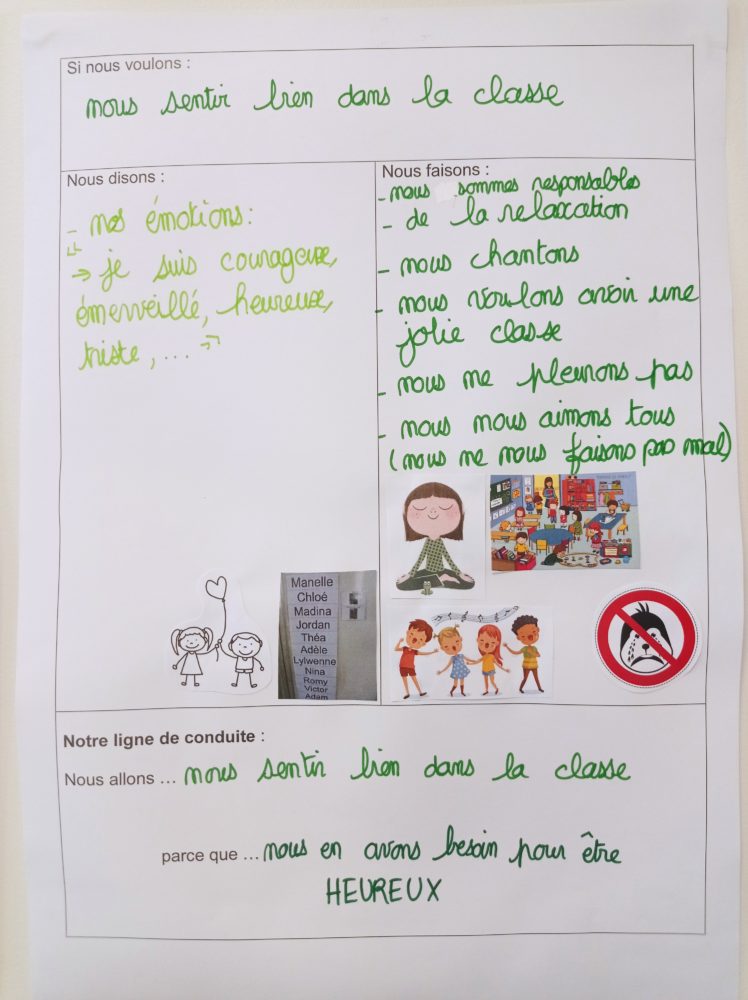 Si nous voulons :
nous sentir bien dans la classe
Nous disons :
- nos émotions:
"
→ je suis courageuse,
émerveillé, heureuse,
triste, ... "
Nous faisons :
- nous sommes responsables
- de la relaxation
- nous chantons
- nous voulons avoir une
jolie classe
- nous ne pleurons pas
- nous nous aimons tous
(nous ne nous faisons pas mal)
Manelle
Chloé
Madina
Jordan
Théa
Adèle
Lylwenne
Nina
Romy
Victor
Adam
Notre ligne de conduite :
Nous allons ... nous sentir bien dans la classe
parce que ... nous en avons besoin pour être
HEUREUX